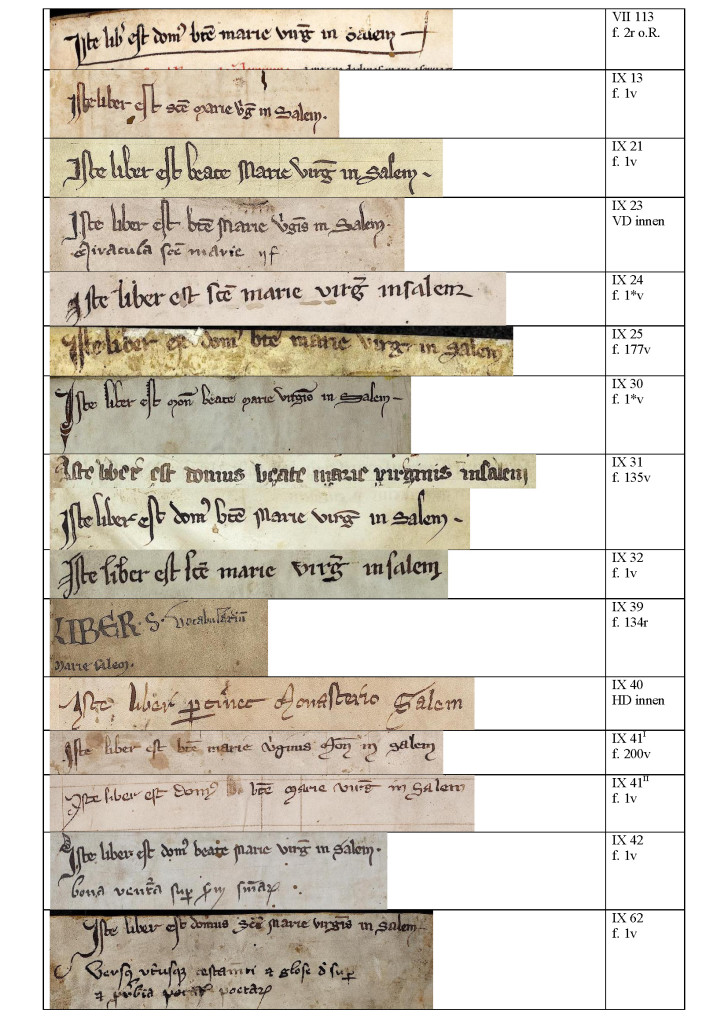 Iste lib̛ est dom⁹ bt̄e marie virḡ in Salem
VII 113
f. 2r o.R.
Iste liber est sc̄e marie v̛ḡ in Salem.
IX 13
f. 1v
Iste liber est beate Marie virḡ in Salem
IX 21
f. 1v
Iste liber est bt̄e Marie v̛gīs in Salem.
Miracula sc̄e marie
IX 23
VD innen
Iste liber est sc̄e marie virḡ insalem
IX 24
f. 1*v
Iste liber est dom⁹ bt̄e marie virḡ in Salem
IX 25
f. 177v
Iste liber est mon̄ beate marie virginis in Salem
IX 30
f. 1*v
Iste liber est domus beate marie virginis insalem
IX 31
f. 135v
Iste liber est dom⁹ bt̄e Marie virḡ in Salem
Iste liber est sc̄e marie virḡ in salem
IX 32
f. 1v
LIBER. S.
Marie salem.
IX 39
f. 134r
Iste liber p̱tinet Monasterio Salem
IX 40
HD innen
Iste liber est bt̄e marie v̛ginis Mon̄ in salem
IX 41ᴵ
f. 200v
Iste liber est dom⁹ bt̄e marie virḡ in Salem
IX 41ᴵᴵ
f. 1v
Iste liber est dom⁹ beate Marie virḡ in Salem.
IX 42
f. 1v
Iste liber est domus Sc̄e Marie virgīs in Salem.
IX 62
f. 1v